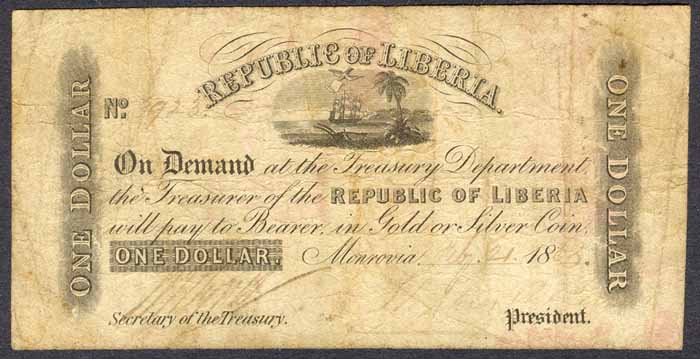 REPUBLIC OF LIBERIA.
No
ONE DOLLAR
ONE DOLLAR
On Demand at the Treasury Department
the Treasurer of the REPUBLIC OF LIBERIA
will pay to Bearer, in Gold or Silver Coin,
ONE DOLLAR. Monrovia, 18
Secretary of the Treasury. President.